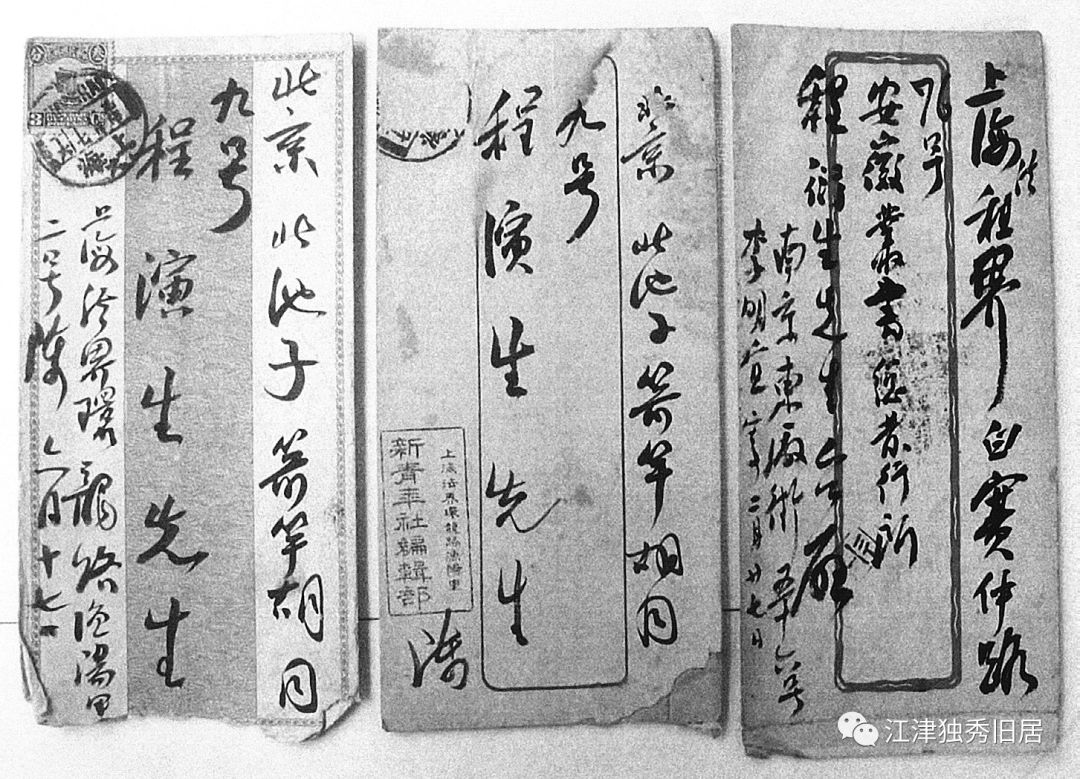 北京 北池子箭竿胡同
九号
程演生先生
上海法界環龍路渔陽里
二号陳 六月十七
北京 北池子箭竿胡同
九号
程演生先生
上海法界環龍路漁陽里
新青年社編輯部
陳
上海法租界白賽仲路
九号
安徽叢書總發行所
程演生先生
南京東廠街 五十六号
李明宣寄 二月廿七日
江津独秀旧居